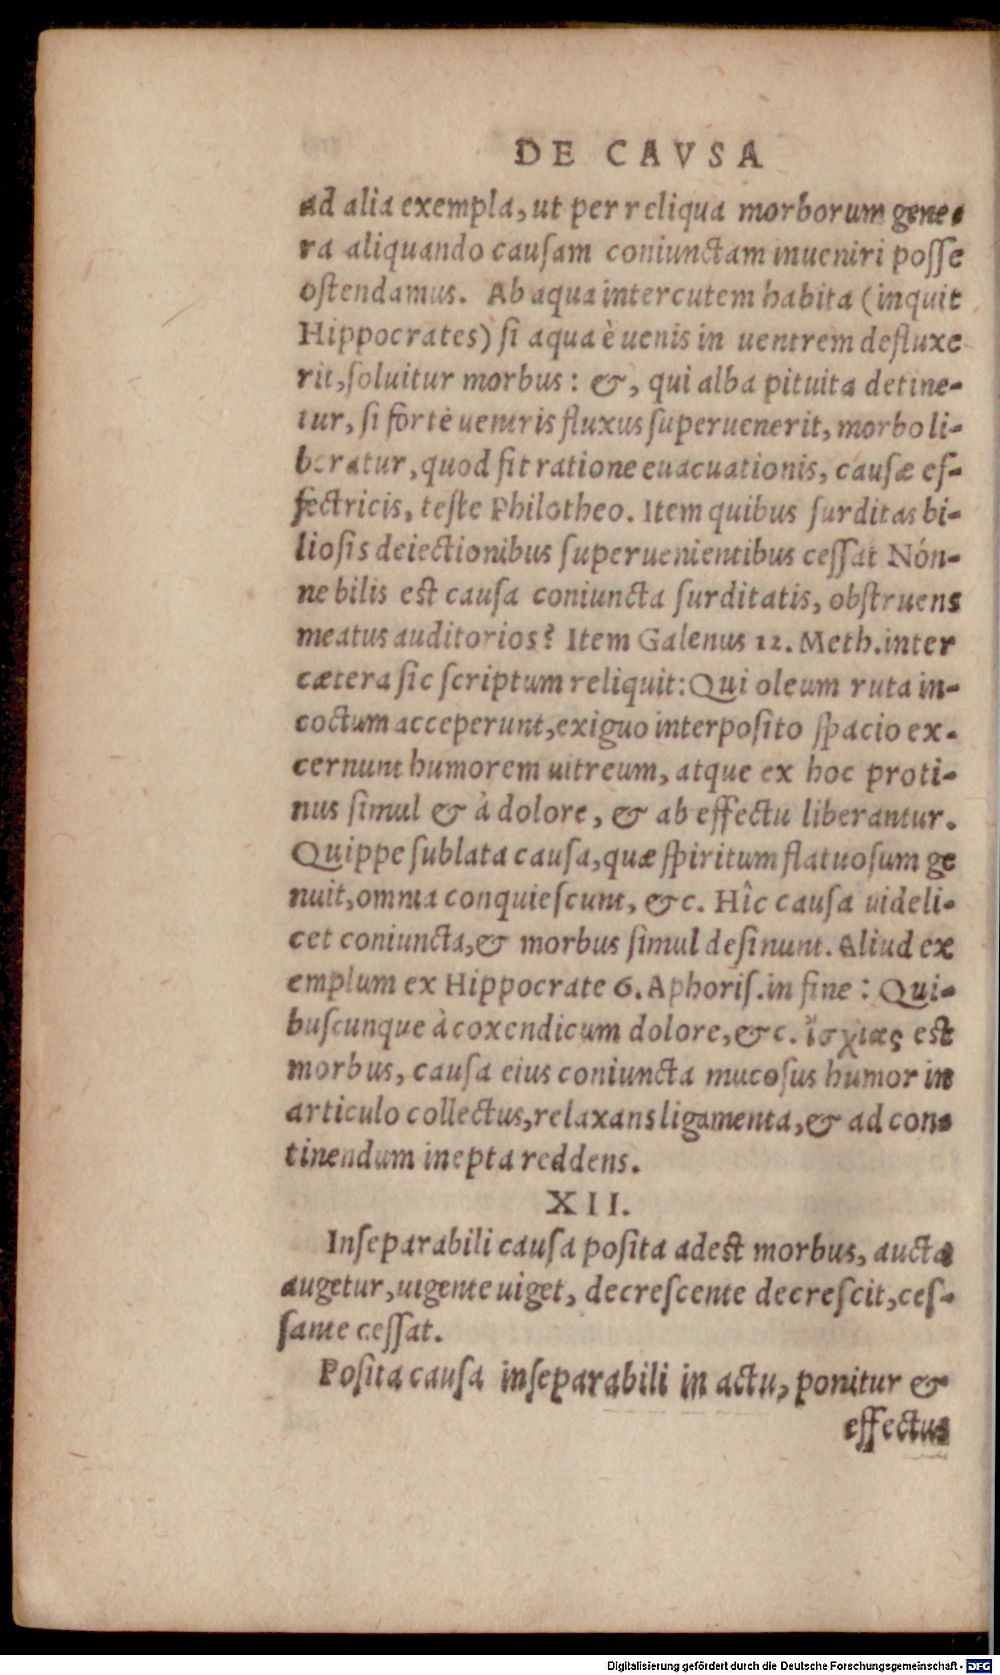 DE CAVSA
ad alia exempla, ut per reliqua morborum gene-
ra aliquando causam coniunctam inueniri posse
ostendamus. Ab aqua intercutem habita (inquit
Hippocrates) si aqua è uenis in uentrem defluxe
rit, soluitur morbus: &, qui alba pituita detine-
tur, si fortè uentris fluxus superuenerit, morbo li-
beratur, quod fit ratione euacuationis, causæ ef-
fectricis, teste Philotheo. Item quibus surditas bi-
liosis deiectionibus superuenientibus cessat Nón-
ne bilis est causa coniuncta surditatis, obstruens
meatus auditorios? Item Galenus 12. Meth. inter
cætera sic scriptum reliquit: Qui oleum ruta in-
coctum acceperunt, exiguo interposito spacio ex-
cernunt humorem uitreum, atque ex hoc proti-
nus simul & à dolore, & ab effectu liberantur.
Quippe sublata causa, quæ spiritum flatuosum ge
nuit, omnia conquiescunt, &c. Hîc causa uideli-
cet coniuncta, & morbus simul desinunt. Aliud ex
emplum ex Hippocrate 6. Aphoris. in fine: Qui-
buscunque à coxendicum dolore, &c. ἴσχιας est
morbus, causa eius coniuncta mucosus humor in
articulo collectus, relaxans ligamenta, & ad con-
tinendum inepta reddens.
XII.
Inseparabili causa posita adest morbus, aucta
augetur, uigente uiget, decrescente decrescit, ces-
sante cessat.
Posita causa inseparabili in actu, ponitur &
effectus
Digitalisierung gefördert durch die Deutsche Forschungsgemeinschaft - DFG